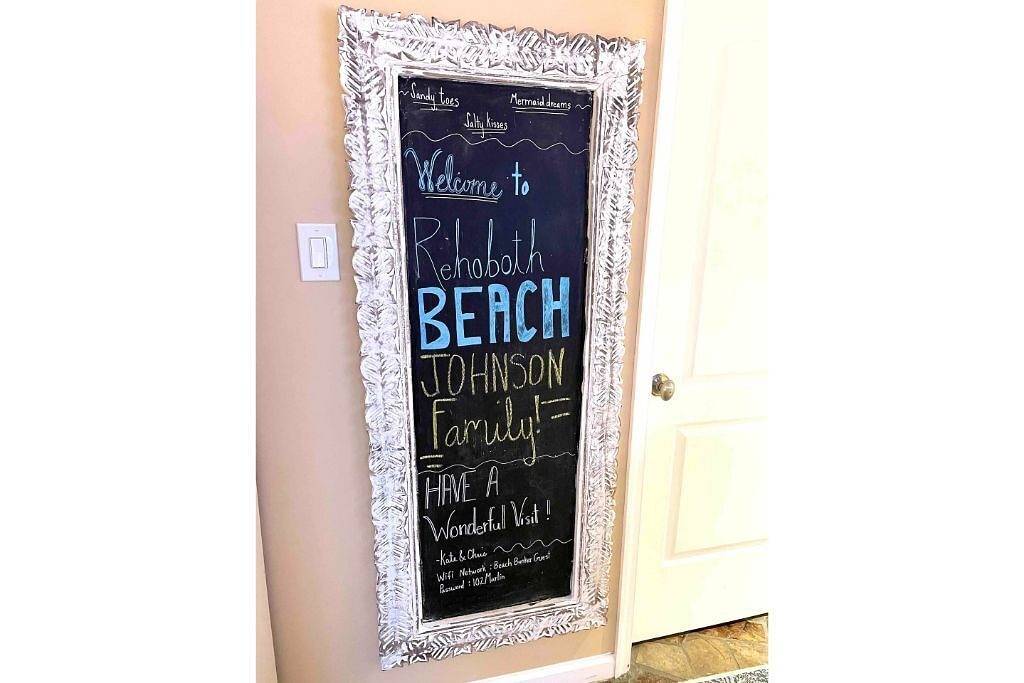 Sandy toes
Mermaid dreams
Salty kisses
Welcome to
Rehoboth
BEACH
JOHNSON
Family!
HAVE A
Wonderful Visit!
-Kate & Chris
Wifi Network: Beach Bunker Guest
Password: 102Marlin